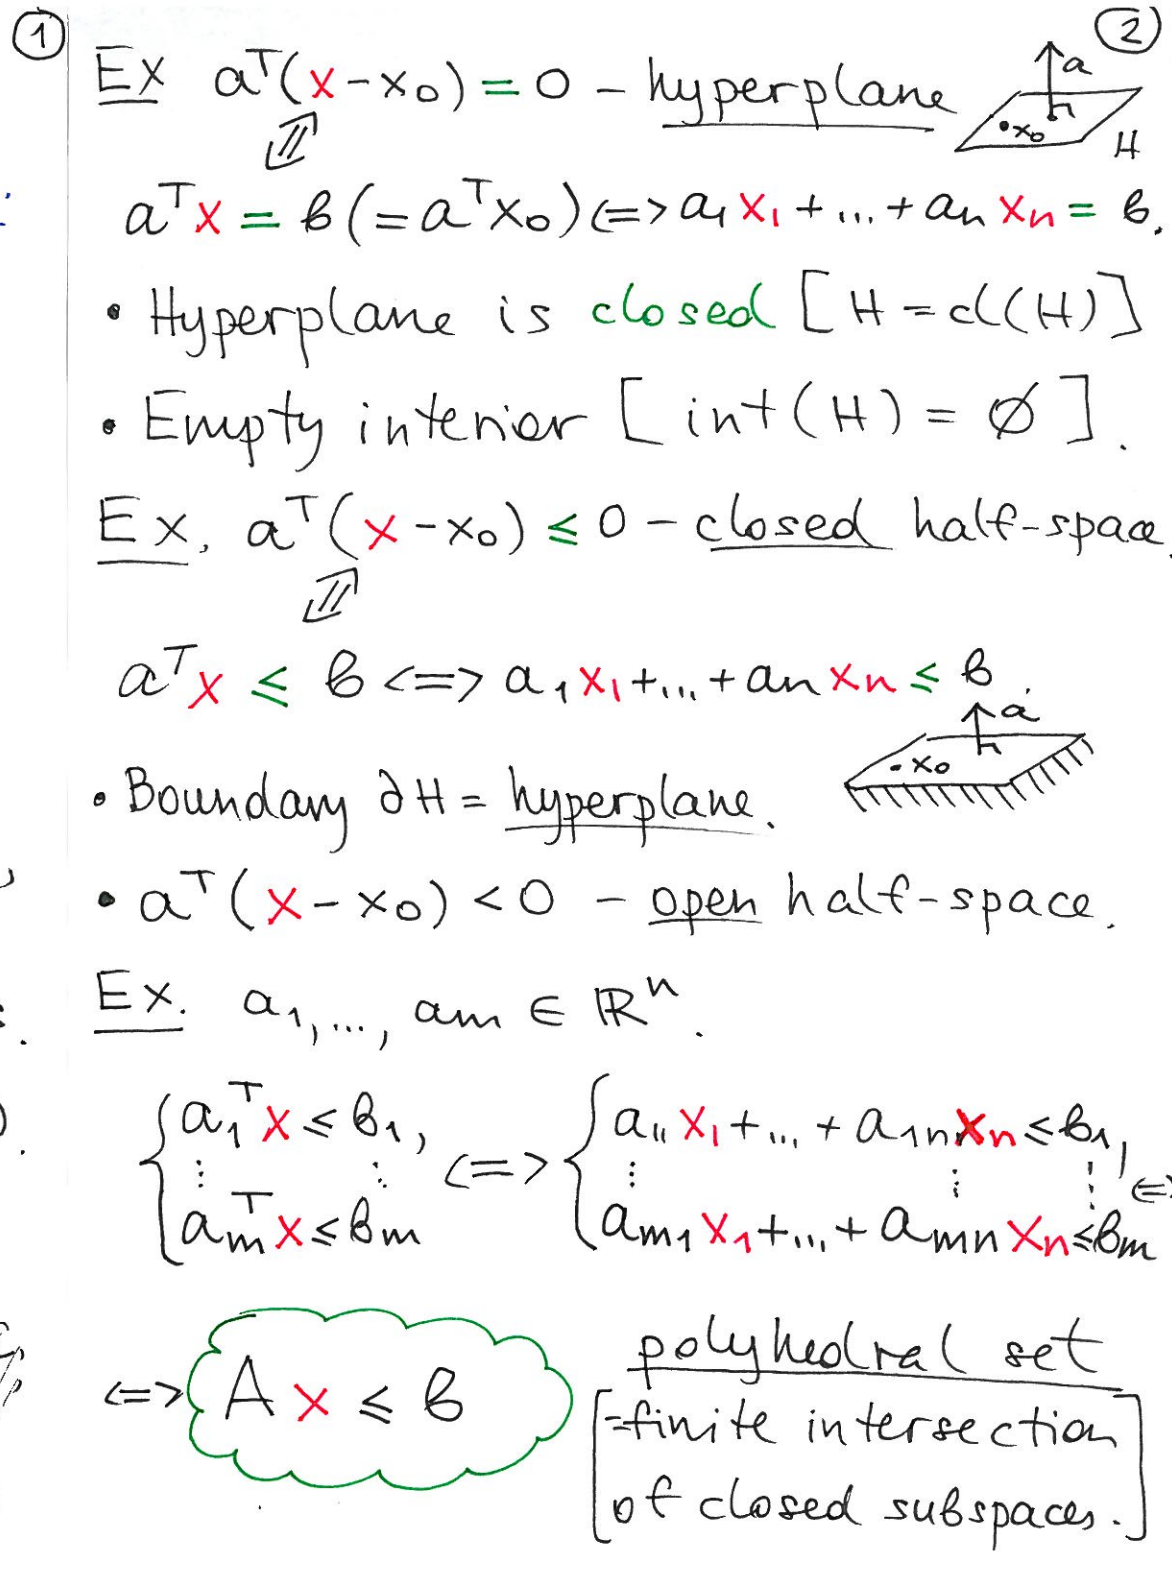 1
2
Ex aᵀ(x-x₀)=0 - hyperplane
a
x₀
H
⇕
aᵀx = b (=aᵀx₀) <=> a₁x₁+...+aₙxₙ = b.
• Hyperplane is closed [H=cl(H)]
• Empty interior [int(H)=∅].
Ex. aᵀ(x-x₀) ≤ 0 - closed half-space.
⇕
aᵀx ≤ b <=> a₁x₁+...+aₙxₙ ≤ b.
a
• x₀
• Boundary ∂H = hyperplane.
• aᵀ(x-x₀) < 0 - open half-space.
Ex. a₁,..., aₘ ∈ ℝⁿ.
{ a₁ᵀx ≤ b₁, <=> { a₁₁x₁+...+a₁ₙxₙ ≤ b₁,
⋮ ⋮ ⋮ ⋮ ⋮ <=>
aₘᵀx ≤ bₘ aₘ₁x₁+...+aₘₙxₙ ≤ bₘ
<=> Ax ≤ b
polyhedral set
[=finite intersection
of closed subspaces.]